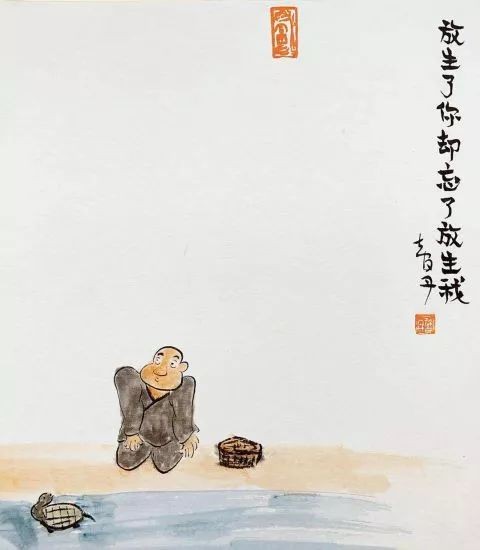 放生了你却忘了放生我